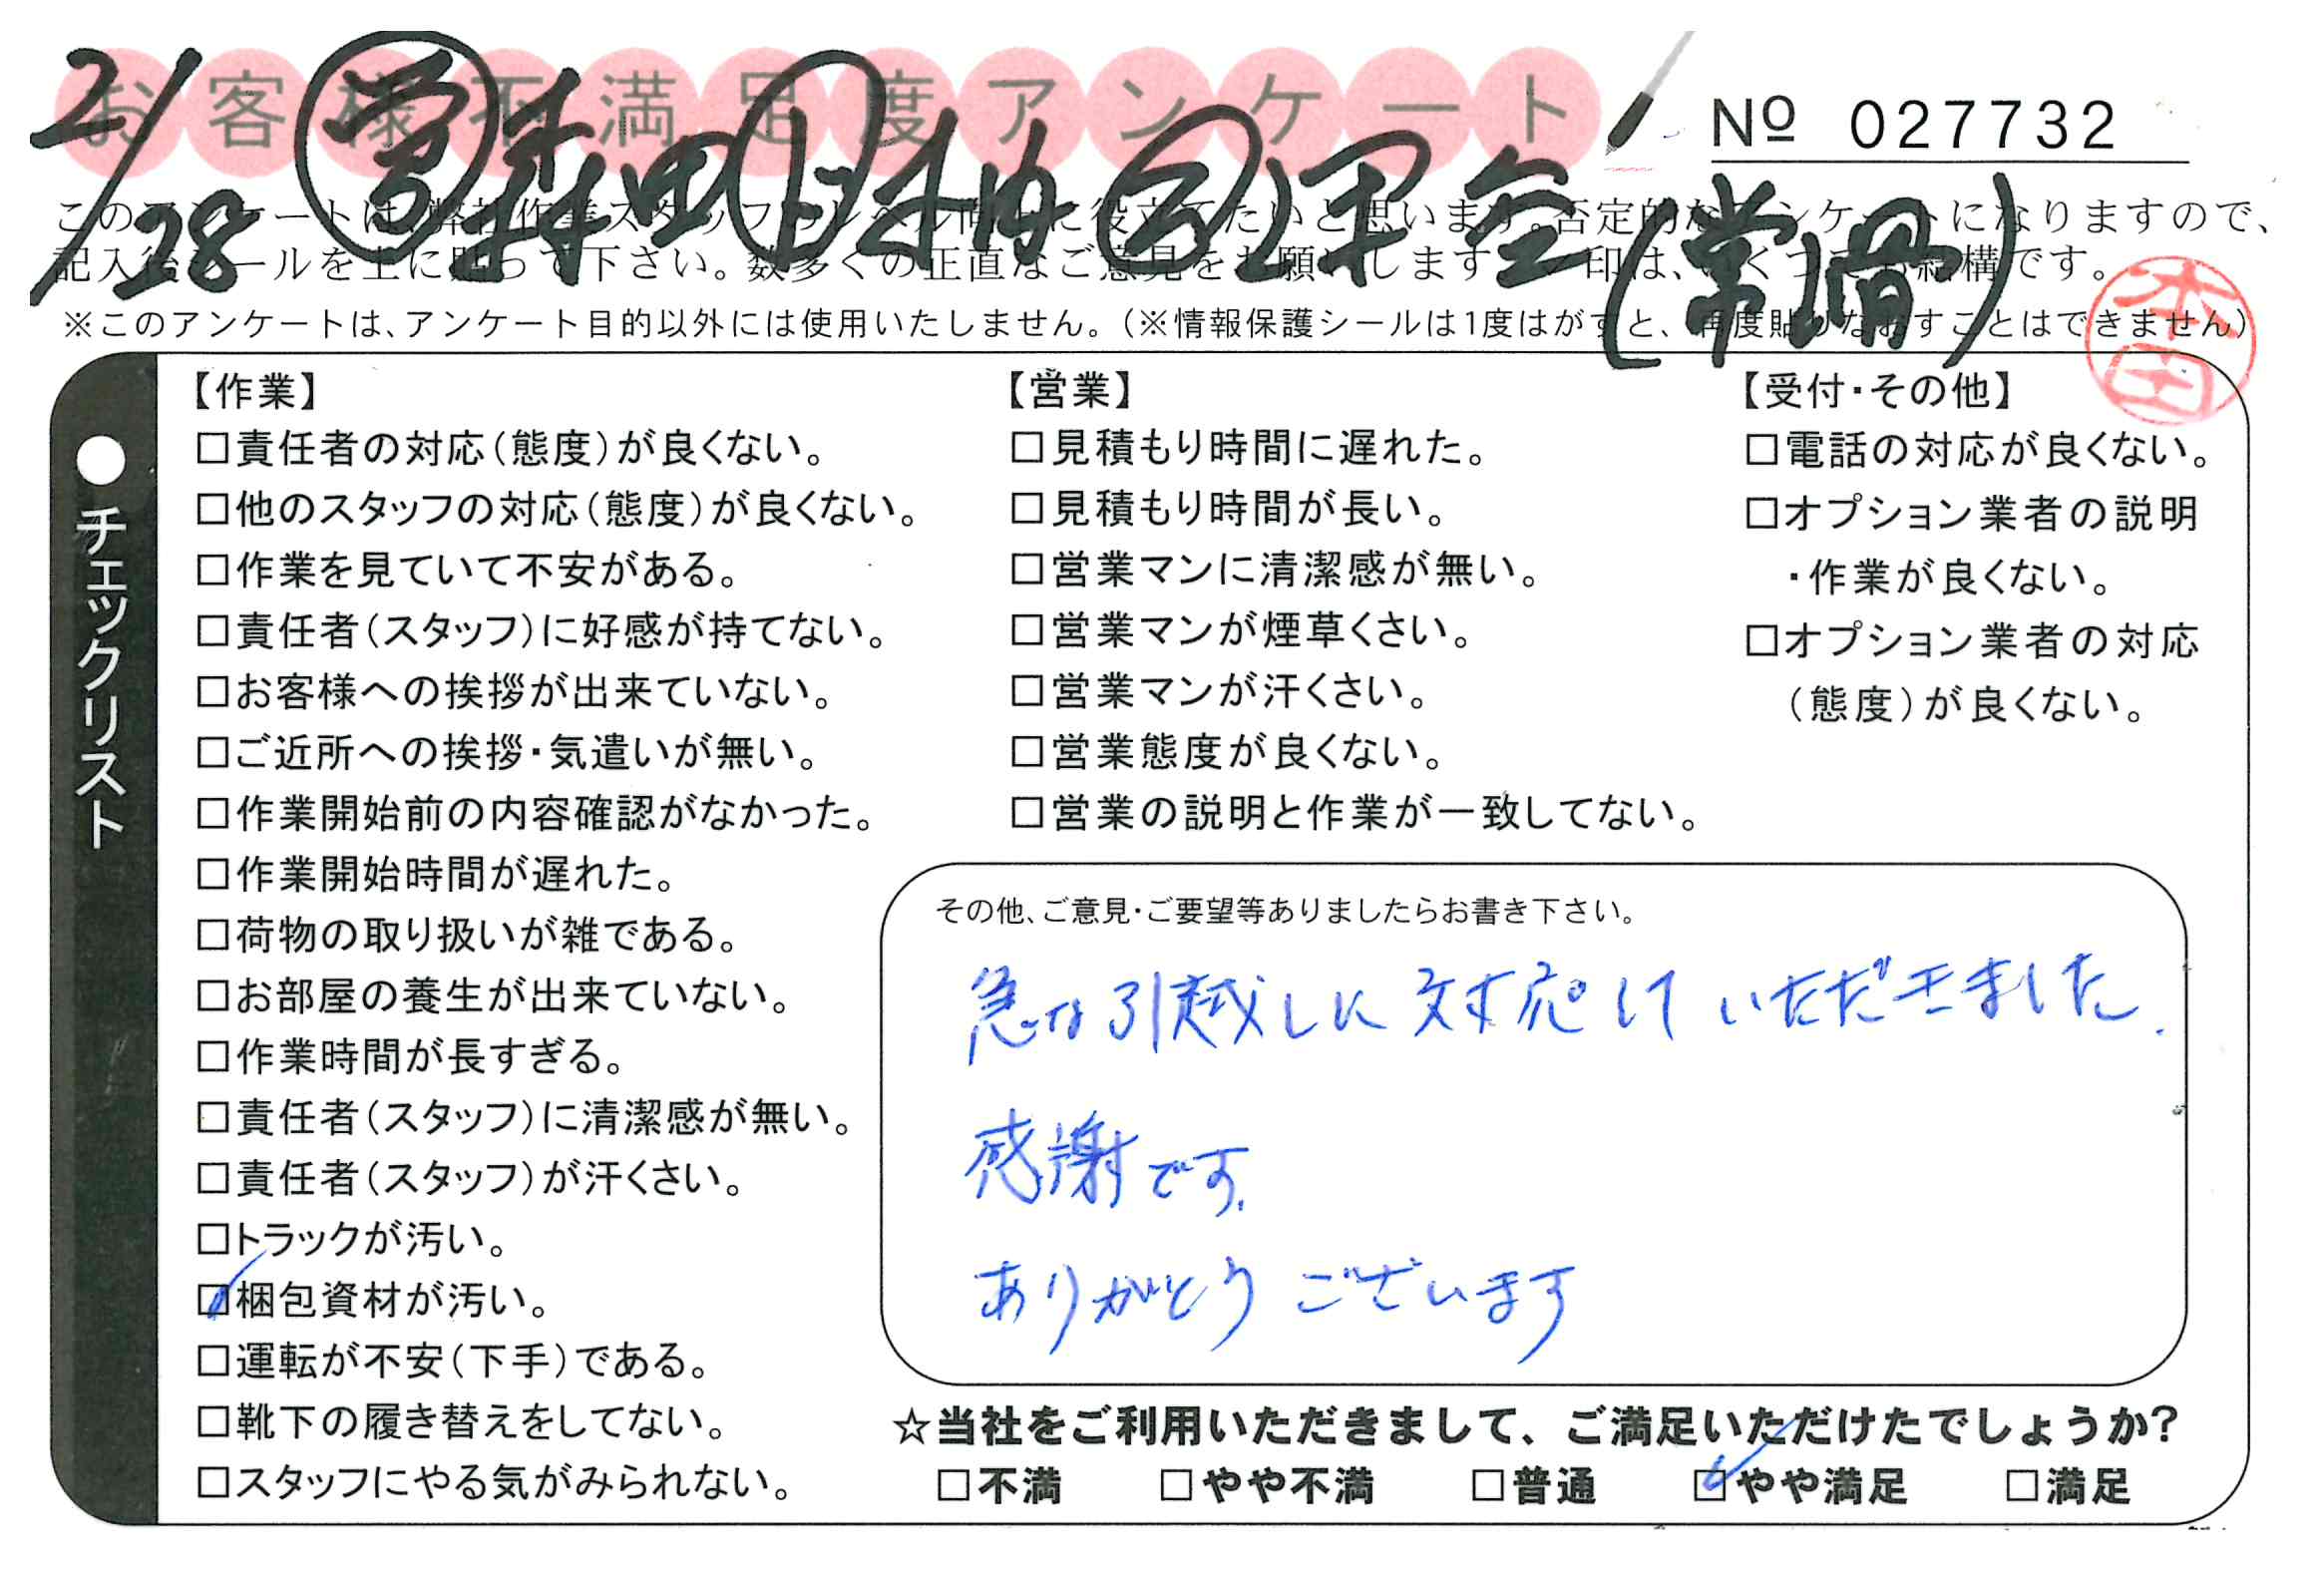 お客様不満足度アンケート
№ 027732
2/28 営 森田 ト 本柏 ② 運営 (常備)
このアンケートは、弊社作業スタッフのレベル向上に役立てたいと思います。否定的なアンケートになりますので、
記入後シールを上に貼って下さい。数多くの正直なご意見をお願いします。✓印は、いくつでもお結構です。
※このアンケートは、アンケート目的以外には使用いたしません。(※情報保護シールは1度はがすと、再度貼りなおすことはできません)
本田
●チェックリスト
【作業】
□責任者の対応(態度)が良くない。
□他のスタッフの対応(態度)が良くない。
□作業を見ていて不安がある。
□責任者(スタッフ)に好感が持てない。
□お客様への挨拶が出来ていない。
□ご近所への挨拶・気遣いが無い。
□作業開始前の内容確認がなかった。
□作業開始時間が遅れた。
□荷物の取り扱いが雑である。
□お部屋の養生が出来ていない。
□作業時間が長すぎる。
□責任者(スタッフ)に清潔感が無い。
□責任者(スタッフ)が汗くさい。
□トラックが汚い。
☑梱包資材が汚い。
□運転が不安(下手)である。
□靴下の履き替えをしてない。
□スタッフにやる気がみられない。
【営業】
□見積もり時間に遅れた。
□見積もり時間が長い。
□営業マンに清潔感が無い。
□営業マンが煙草くさい。
□営業マンが汗くさい。
□営業態度が良くない。
□営業の説明と作業が一致してない。
【受付・その他】
□電話の対応が良くない。
□オプション業者の説明
・作業が良くない。
□オプション業者の対応
(態度)が良くない。
その他、ご意見・ご要望等ありましたらお書き下さい。
急な引越しに対応していただきました.
感謝です.
ありがとうございます
☆当社をご利用いただきまして、ご満足いただけたでしょうか?
□不満 □やや不満 □普通 ☑やや満足 □満足